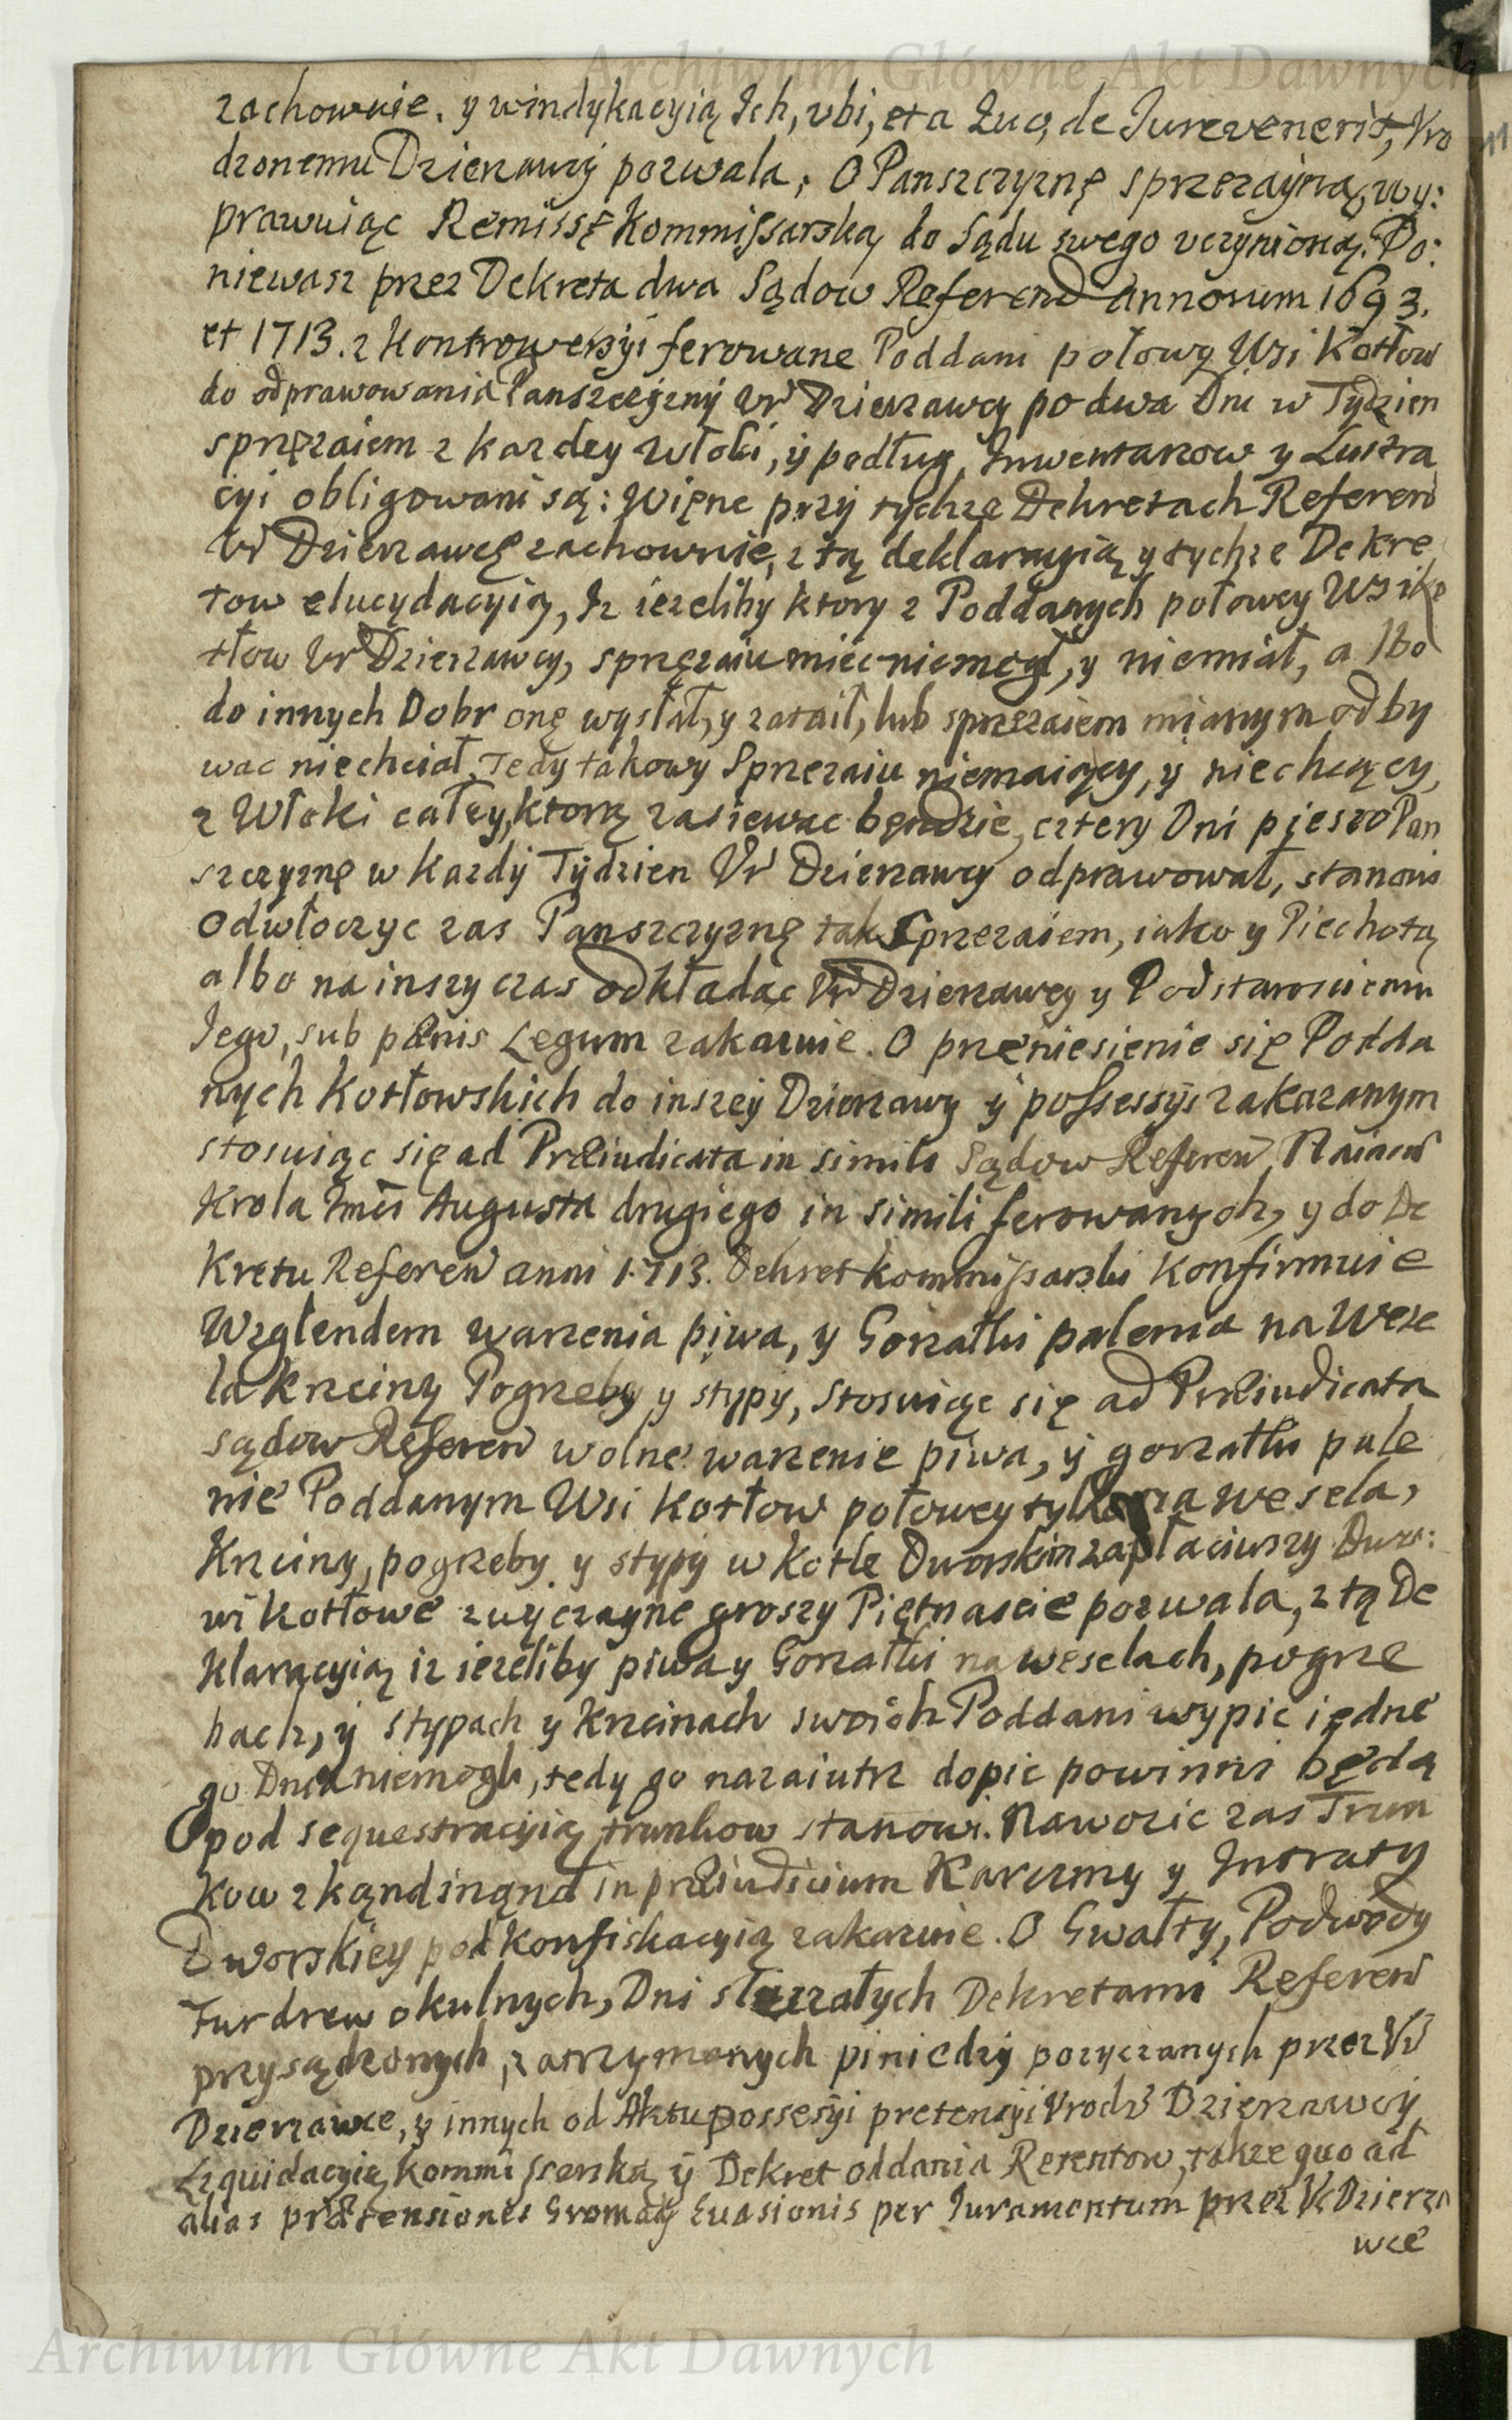 Archiwum Główne Akt Dawnych
zachowuie. y windykacyią Ich, vbi, et a quo, de Iure venerit, Vro
dzonemu Dzierzawcy pozwala, O Panszczyznę sprzezayną, wy:
prawuiąc Remissę Kommissarską do Sądu swego vczynioną. Po:
niewasz przez Dekreta dwa Sądow Referend annorum 1693.
et 1713. z Kontrowersyi ferowane Poddani połowy Wsi Kotłow
do odprawowania Panszczyzny Ur Dzierzawcy po dwa Dni w Tydzien
sprzęzaiem z kazdey włoki, y podług Inwentarzow y Lustra
cyi obligowani są: Więnc przy tychze Dekretach Referen
Ur Dzierzawcę zachownie, z tą deklaracyią y tychze Dekre
tow elucydacyią, Iz iezeliby ktory z Poddanych połowey Wsi Ko
tłow Ur Dzierzawcy, sprzęzaiu miec niemogł, y niemiał, albo
do innych Dobr onę wysłał, y zataił, lub sprzezaiem mianym odby
wac niechciał, Tedy takowy Sprzezaiu niemaiący, y niechcący,
z Włoki całey, ktorą zasiewac będzie, cztery Dni pieszo Pan
szczyznę w Kazdy Tydzien Ur Dzierzawcy odprawował, stanowi
Odwłoczyc zas Panszczyznę tak Sprzezaiem, iako y Piechotą
albo na inszy czas odkładac Ur Dzierzawcy y Podstarosciemu
Iego, sub pænis Legum zakazuie. O przeniesienie się Podda
nych Kotłowskich do inszey Dzierzawy y possessyi zakazanym
stosuiąc się ad Præiudicata in simili Sądow Referen, Naiasn
Krola Imci Augusta drugiego in simili ferowanych, y do De
Kretu Referen anni 1713. Dekret kommissarski Konfirmuie
Względem warzenia piwa, y Gorzałki palenia na Wese
la Krzciny Pogrzeby y stypy, Stosuiąc się ad Præiudicata
sądow Referen wolne warzenie piwa, y gorzałki pale
nie Poddanym Wsi Kotłow połowey tylko na wesela,
Krzciny, pogrzeby y stypy w Kotle Dworskim zapłaciwszy Dwo:
wi kotłowe zwyczayne groszy Piętnascie pozwala, z tą De
Klaracyią iz iezeliby piwa y Gorzałki na weselach, pogrze
bach, y stypach y Krzcinach swoich Poddani wypic iedne
go Dnia niemogli, tedy go nazaiutrz dopic powinni będą
pod sequestracyią trunkow stanowi. Nawozic zas Trun
kow zkąndinąnd in præiudicium Karczmy y Intraty
Dworskiey pod konfiskacyią zakazuie. O Gwałty, Podwody
Fur drew okulnych, Dni Dekretami Referen
przysądzonych, zatrzymanych piniedzy pozyczanych przez Ur
Dzierzawce, y innych od Aktu possesyi pretensyi Vrodz Dzierzawcy
Liquidacyią kommissarską y Dekret oddania Retentow, takze quo ad
alias prætensiones Gromady Euasionis per Iuramentum przez Ur Dzierza
wce
Archiwum Główne Akt Dawnych